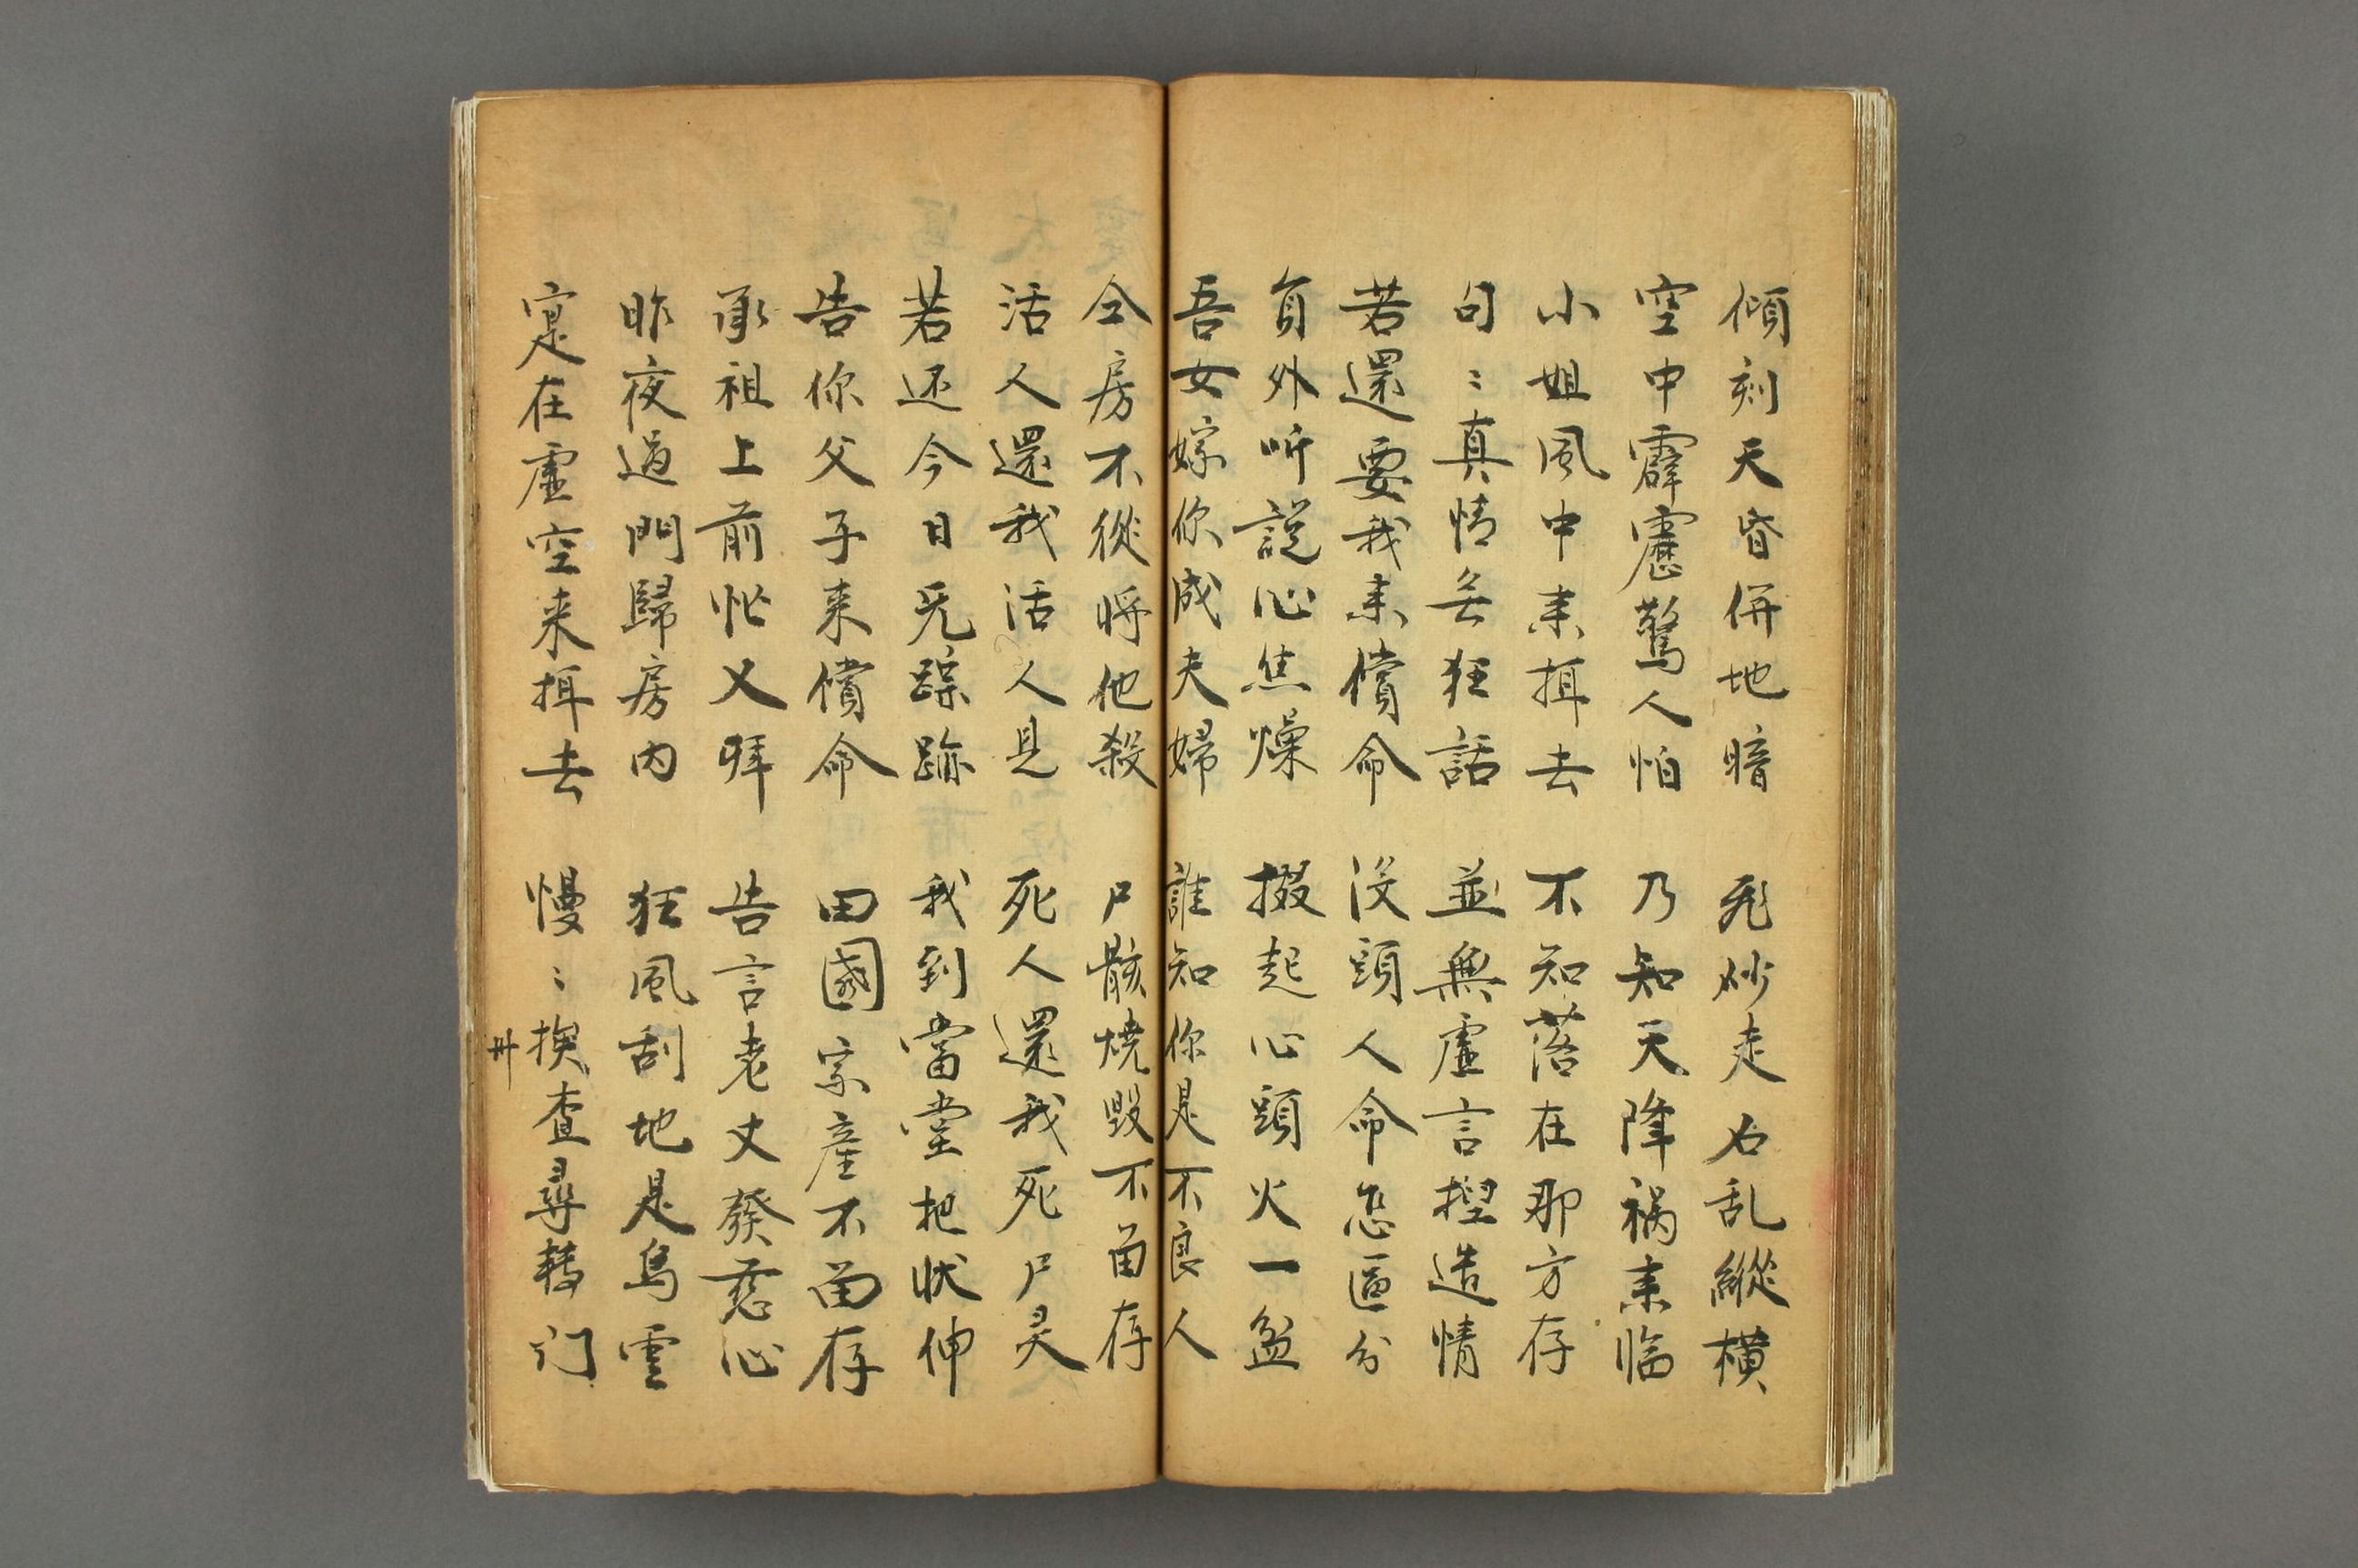 傾刻天昏併地暗 飛炒走石乱縱橫
空中霹靂驚人怕 乃知天降禍来临
小姐風中来揖去 不知落在那方存
句〻真情无狂話 並無虛言揑造情
若還要我来償命 没頭人命怎區分
員外听說心焦燥 掇起心頭火一盆
吾女嫁你成夫婦 誰知你是不良人
仝房不從将他殺 尸骸燒毁不畄存
活人還我活人見 死人還我死尸灵
若还今日无踪跡 我到當堂把状伸
告你父子来償命 田國家產不畄存
承祖上前忙又拜 告言老丈發慈心
昨夜過門歸房内 狂風刮地是烏雲
寔在虛空来揖去 慢〻挨查尋轉门
卅